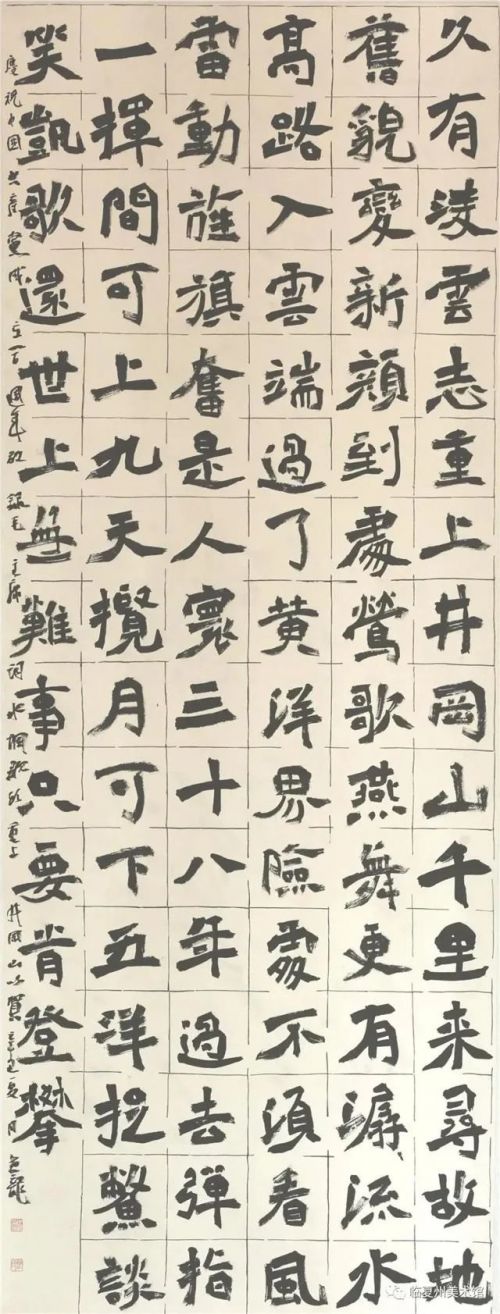 久有淩雲志重上井岡山千里来尋故地
舊貌變新顔到處鶯歌燕舞更有潺流水
髙路入雲端過了黄洋界險處不須看風
雷動旌旗奮是人寰三十八年過去彈指
一揮間可上九天攬月可下五洋捉鱉談
笑凱歌還世上無難事只要肯登攀
慶祝中国共産黨成立一百週年敬録毛主席詞水調歌頭重上井岡山以賀辛丑夏月
临夏州美术馆